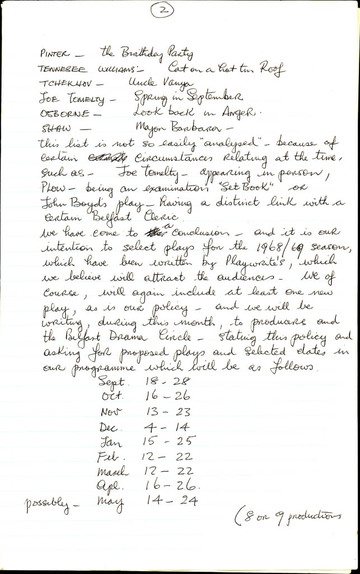 2
PINTER — the Birthday Party
TENNESEE WILLIAMS — Cat on a hot tin Roof
TCHEKHOV — Uncle Vanya
JOE TOMELTY — Spring in September
OSBORNE — Look back in Anger.
SHAW — Major Barbara —
This list is not so easily "analysed" — because of
certain circumstances relating at the time,
such as — Joe Tomelty — appearing in person,
Plow — being an examination "Set Book" or
John Boyd's play — having a distinct link with a
certain Belfast Cleric.
We have come to a conclusion — and it is our
intention to select plays for the 1968/69 season,
which have been written by Playwrite's, which
we believe will attract the audiences — We of
course, will again include at least one new
play, as is our policy — and we will be
writing, during this month, to producers and
the Belfast Drama Circle — stating this policy and
asking for proposed plays and selected dates in
our programme which will be as follows.
Sept. 18 – 28
Oct. 16 – 26
Nov 13 – 23
Dec. 4 – 14
Jan 15 – 25
Feb. 12 – 22
March 12 – 22
Apl. 16 – 26.
possibly — May 14 – 24
(8 or 9 productions